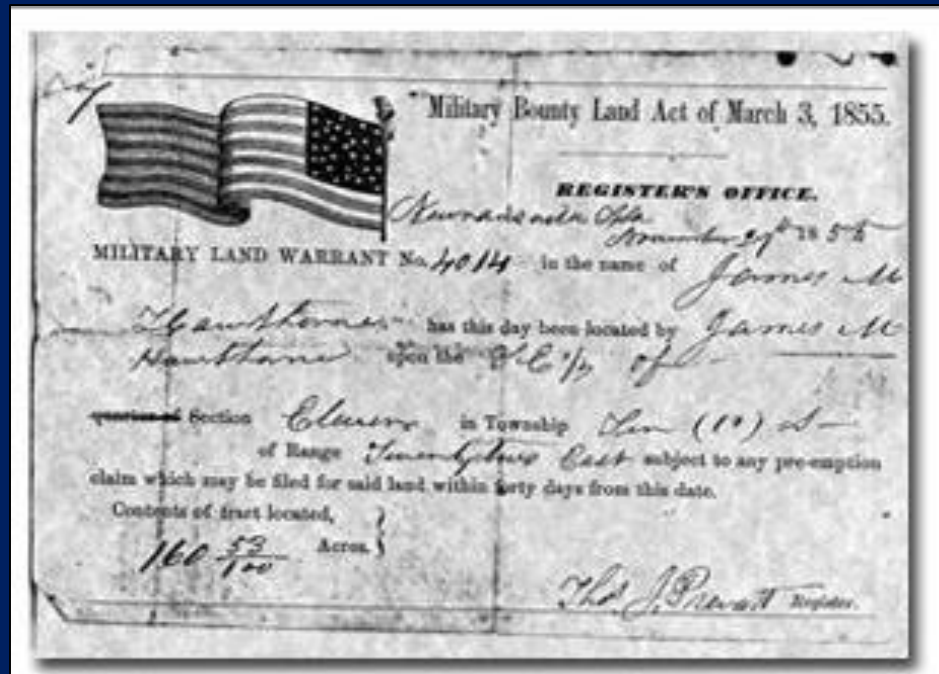 Military Bounty Land Act of March 3, 1855.
REGISTER'S OFFICE.
Newnansville Fla
November 29th 1855
MILITARY LAND WARRANT No. 4014 in the name of James M
Hawthorne has this day been located by James M
Hawthorne upon the S E 1/4 of
quarter of Section Eleven in Township Ten (10) S
of Range Twenty two East subject to any pre-emption
claim which may be filed for said land within forty days from this date.
Contents of tract located,
160 53/100 Acres.
Thos. J. Prevatt Register.